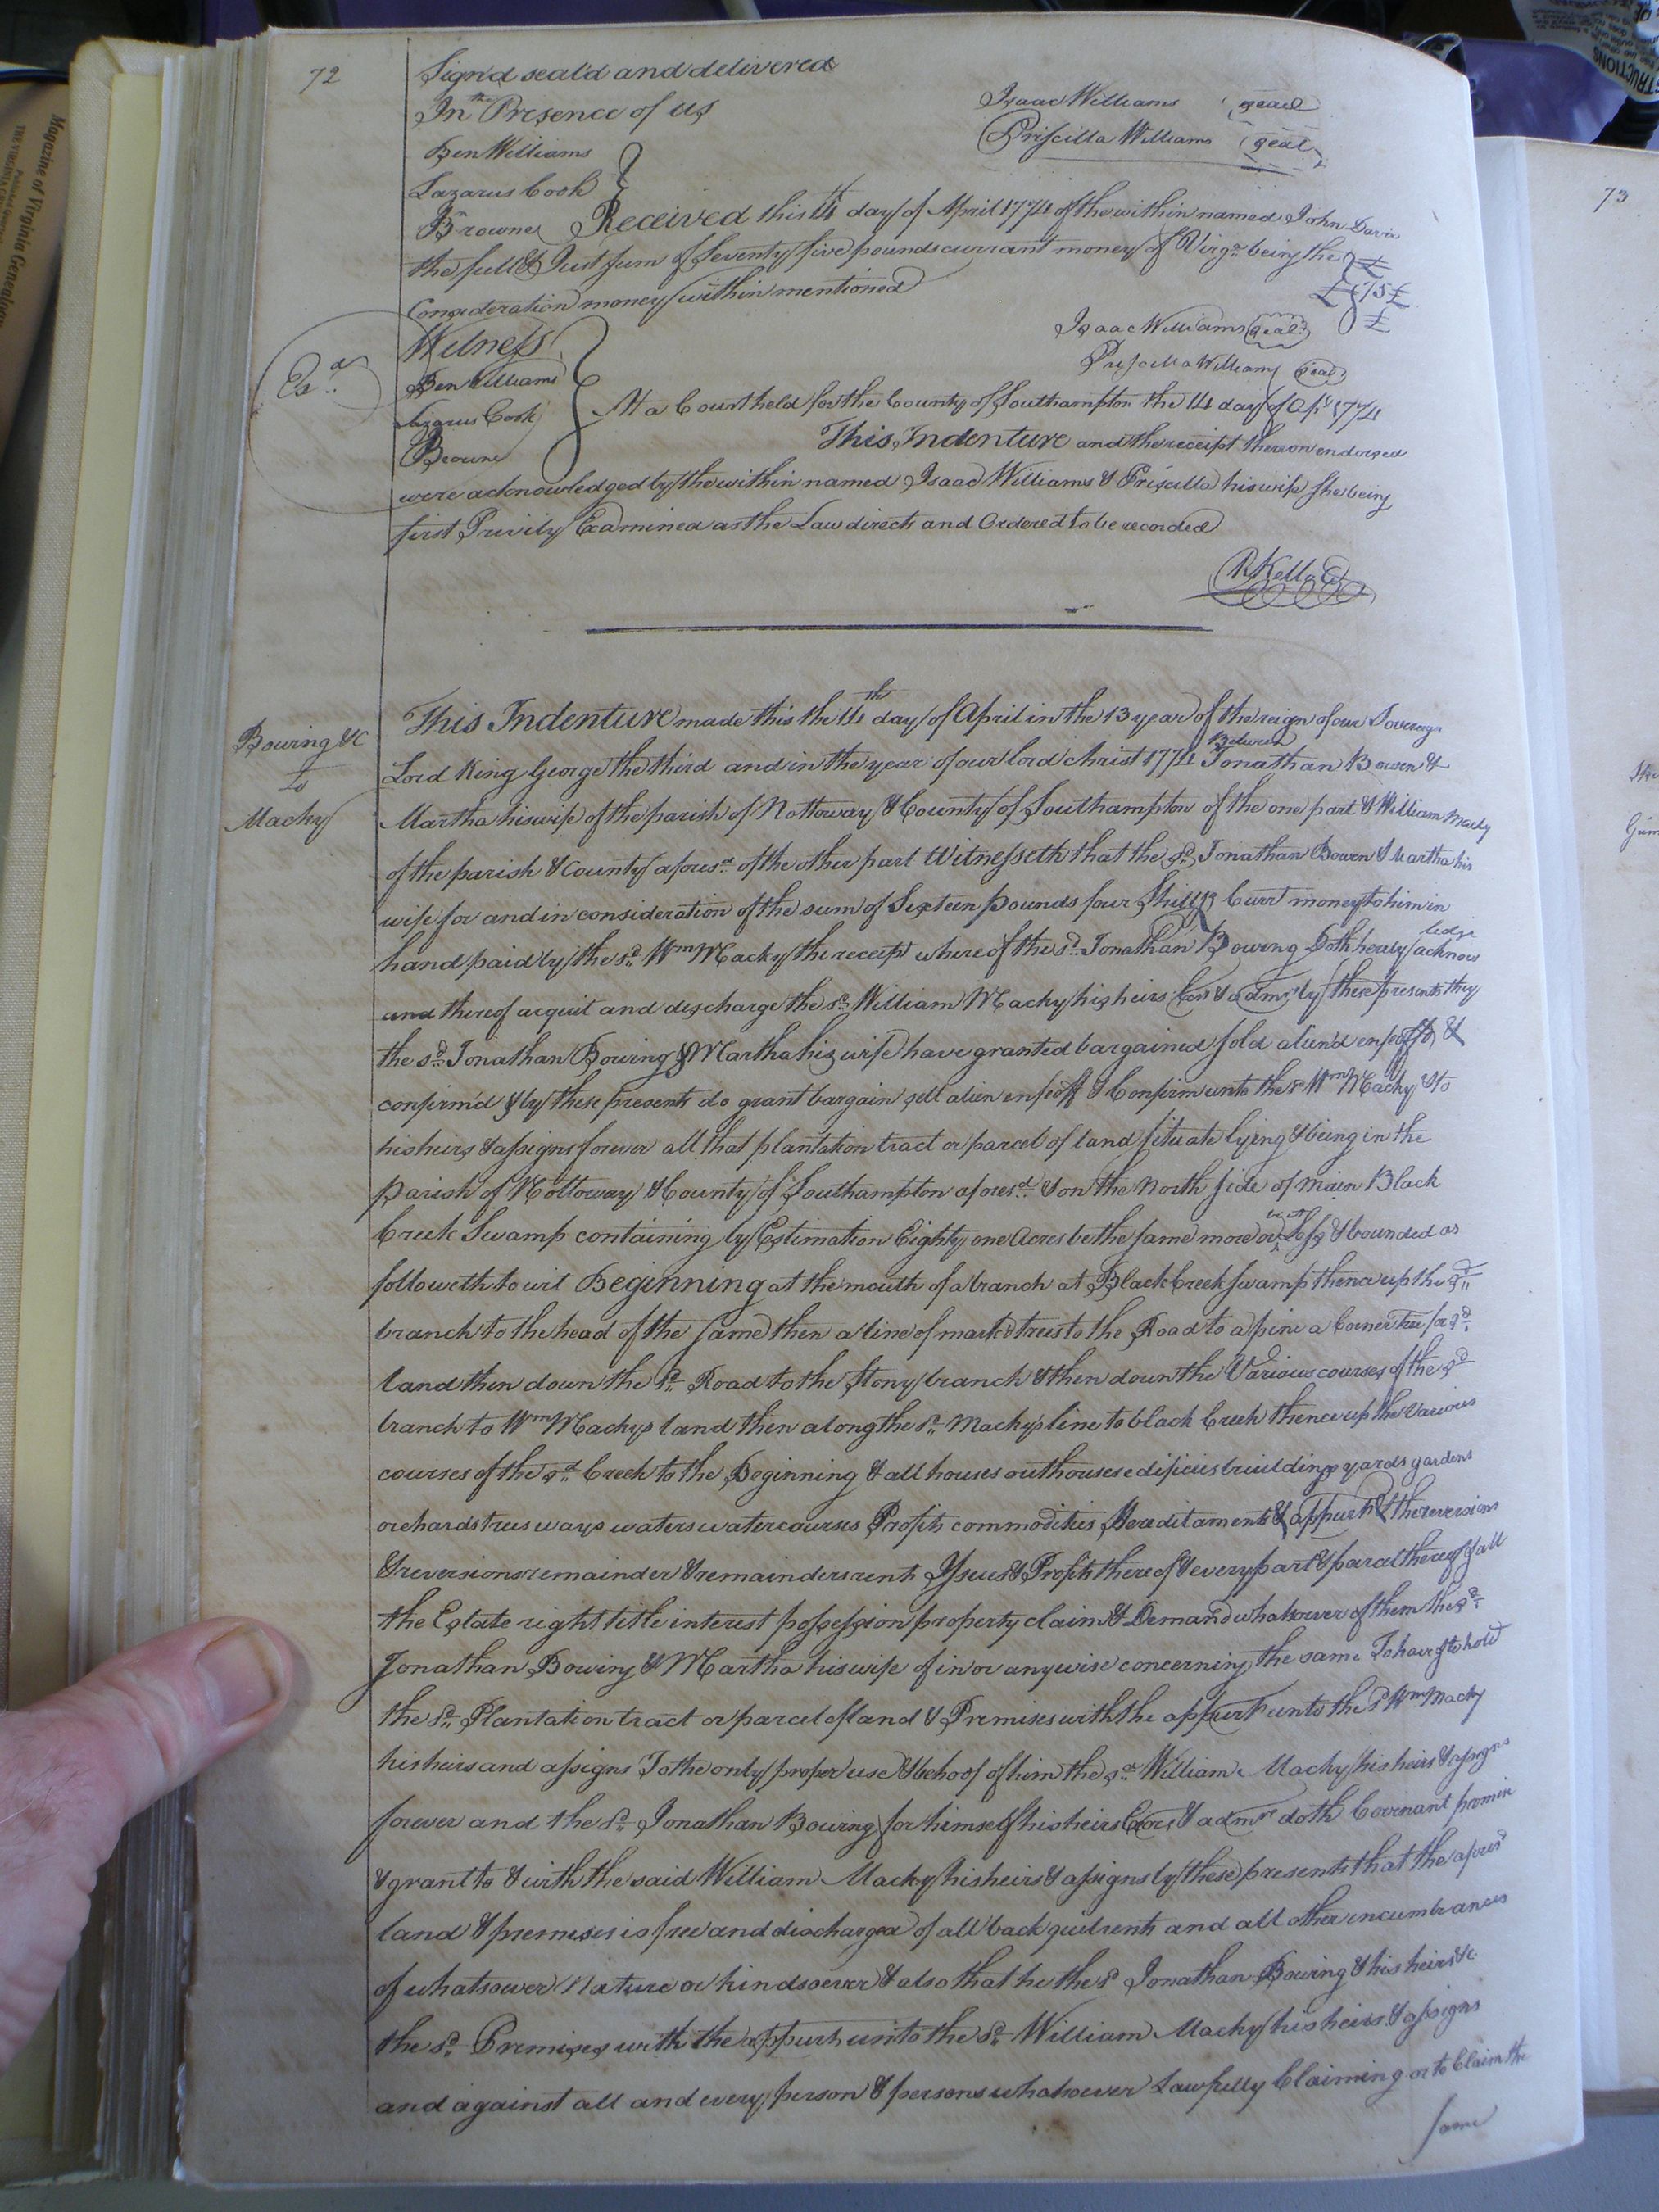 72
Sign'd seal'd and delivered
In the Presence of us
Isaac Williams seal
Priscilla Williams seal
Ben Williams
Lazarus Cook
Browne Received this 14 day of April 1774 of the within named John Davis
the full & Just sum of Seventy five pounds currant money of Virga being the
Consideration money within mentioned £75
Isaac Williams seal
Priscilla Williams seal
Witness
Exd
Ben Williams
Lazarus Cook
Browne
At a Court held for the County of Southampton the 14 day of Apl 1774
This Indenture and the receipt thereon endorsed
were acknowledged by the within named Isaac Williams & Priscilla his wife she being
first Privily Examined as the Law directs and Ordered to be recorded
R Kello
Bowing &c
to
Macky
This Indenture made this the 14th day of April in the 13 year of the reign of our Soverign
Lord King George the third and in the year of our lord christ 1774 Between Jonathan Bowen &
Martha his wife of the parish of Nottoway & County of Southampton of the one part & William Macky
of the parish & County aforesd of the other part Witnesseth that the sd Jonathan Bowen & Martha his
wife for and in consideration of the sum of Sixteen pounds four Shillgs Curr money to him in
hand paid by the sd Wm Macky the receipt whereof the sd Jonathan Bowing Doth hereby acknow
ledge
and thereof acquit and descharge the sd William Macky his heirs Exrs & admrs by these presents they
the sd Jonathan Bowing & Martha his wife have granted bargained sold aliend enfeoff'd &
confirm'd & by these presents do grant bargain sell alien enfeoff & Confirm unto the sd Wm Macky & to
his heirs & assigns forever all that plantation tract or parcel of land situate lying & being in the
parish of Nottoway & County of Southampton aforesd & on the North side of Main Black
Creek Swamp containing by Estimation Eighty one Acres be the same more or Less & bounded as
followeth to wit Beginning at the mouth of a branch at Black Creek swamp thence up the sd
branch to the head of the same then a line of markd trees to the Road to a pine a Corner Tree for sd
land then down the sd Road to the stony branch & then down the Various courses of the sd
branch to Wm Mackys land then along the sd Mackys line to black Creek thence up the Various
courses of the sd Creek to the Beginning & all houses outhouses edificies buildings yards gardens
orchards trees ways waters watercourses Profits commodities Hereditaments & appurts & the reversions
& reversions remainder & remainders rents Issues & Profits thereof & every part & parcel thereof & all
the Estate right title interest possession property claim & Demand whatsoever of them the sd
Jonathan Bowing & Martha his wife of in or anywise concerning the same To have & to hold
the sd Plantation tract or parcel of land & Premises with the appurts unto the sd Wm Macky
his heirs and assigns To the only proper use & behoof of him the sd William Macky his heirs & assigns
forever and the sd Jonathan Bowing for himself his heirs Exors & admrs doth Covenant promise
& grant to & with the said William Macky his heirs & assigns by these presents that the aforesd
land & premises is free and discharged of all back quitrents and all other incumbrances
of whatsover Nature or kindsoever & also that he the sd Jonathan Bowing & his heirs &c
the sd Premises with the appurts unto the sd William Macky his heirs & assigns
and against all and every person & persons whatsoever Lawfully Claiming or to Claim the
same
73
Magazine of Virginia Genealogy